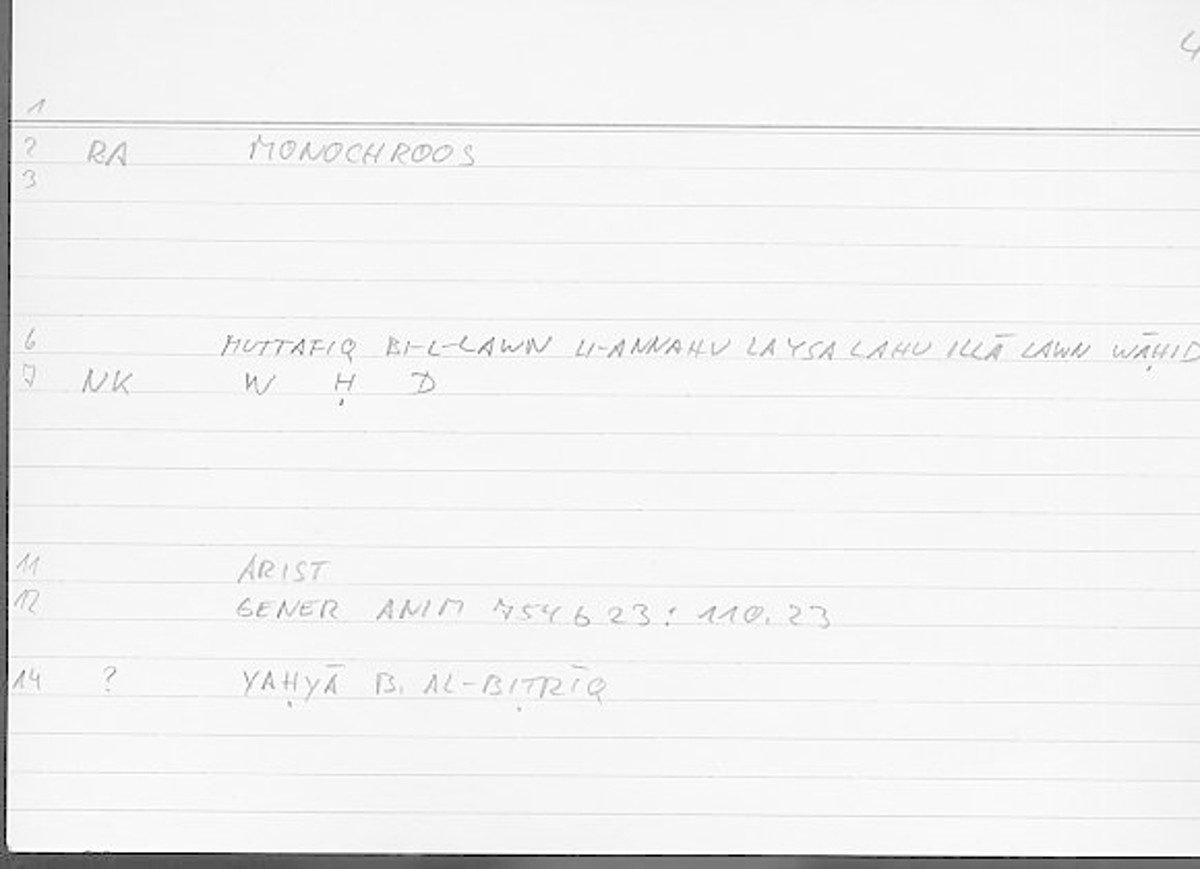 4
1
2 RA MONOCHROOS
3
6 MUTTAFIQ BI-L-LAWN LI-ANNAHU LAYSA LAHU ILLĀ LAWN WĀḤID
7 NK W Ḥ D
11 ARIST
12 GENER ANIM 754 b 23 : 110.23
14 ? YAḤYĀ B. AL-BIṬRĪQ